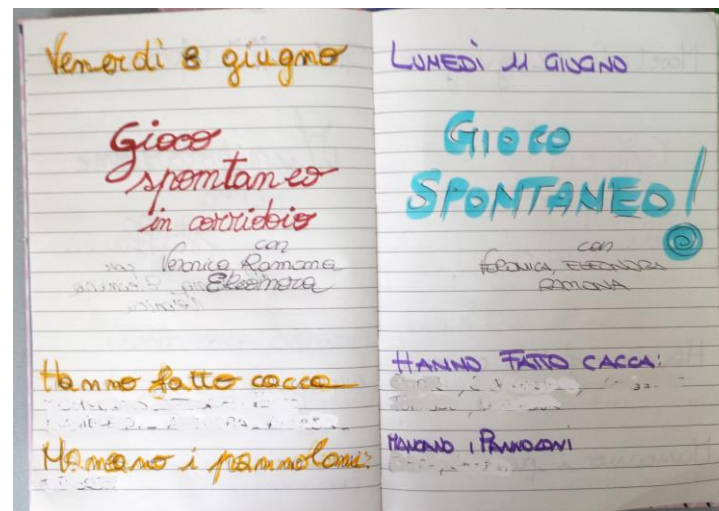 Venerdì 8 giugno
Gioco
spontaneo
in corridoio
con
Veronica Ramona
Eleonora
Hanno fatto cacca
Mancano i pannoloni:
LUNEDÌ 11 GIUGNO
GIOCO
SPONTANEO!
con
VERONICA, ELEONORA
RAMONA
HANNO FATTO CACCA:
MANCANO i PANNOLONI